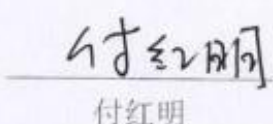 付红明
付红明